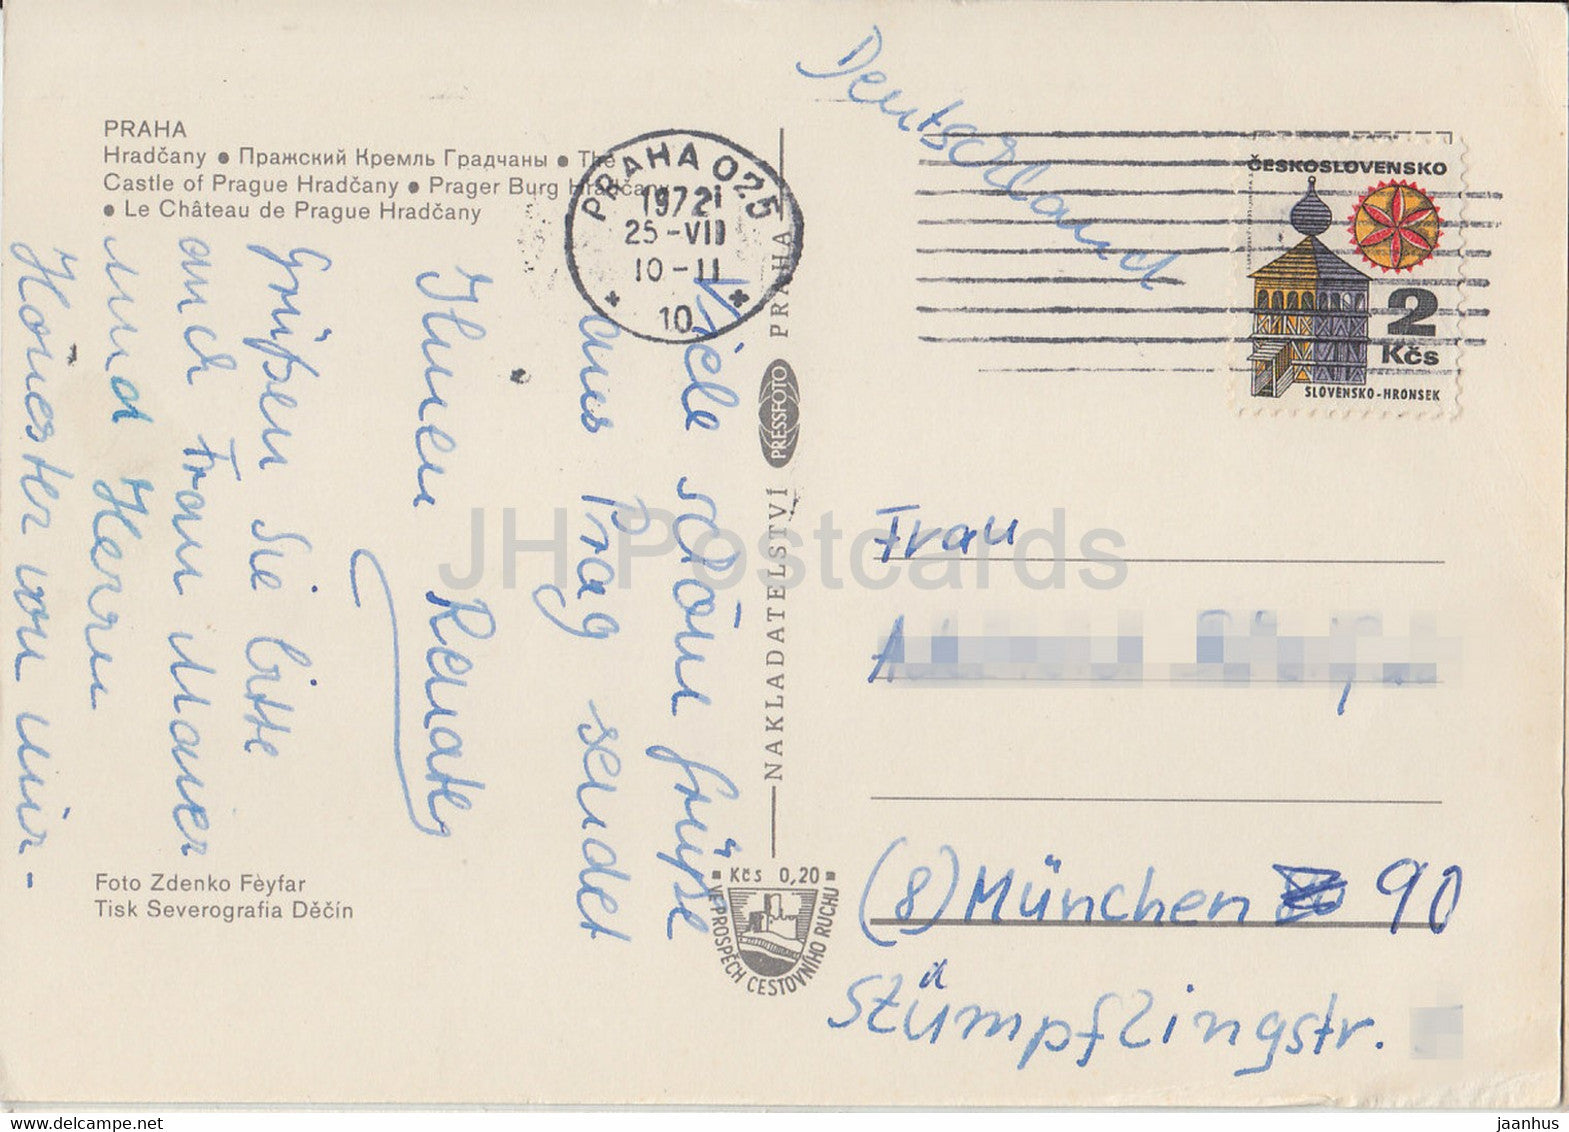 PRAHA
Hradčany • Пражский Кремль Градчаны • The
Castle of Prague Hradčany • Prager Burg Hradčany
• Le Château de Prague Hradčany
PRAHA 025
1972
25-VII
10-11
10
Deutschland
ČESKOSLOVENSKO
2
Kčs
SLOVENSKO-HRONSEK
Viele schöne Grüße
aus Prag sendet
Ihnen Renate
Grüßen Sie bitte
auch Frau Maurer
und Herrn
von mir -
NAKLADATELSTVÍ PRESSFOTO PRAHA
Frau
(8) München 90
Stümpflingstr.
Foto Zdenko Fèyfar
Tisk Severografia Děčín
Kčs 0,20
VE PROSPĚCH CESTOVNÍHO RUCHU
JH Postcards
jaanhus
www.delcampe.net